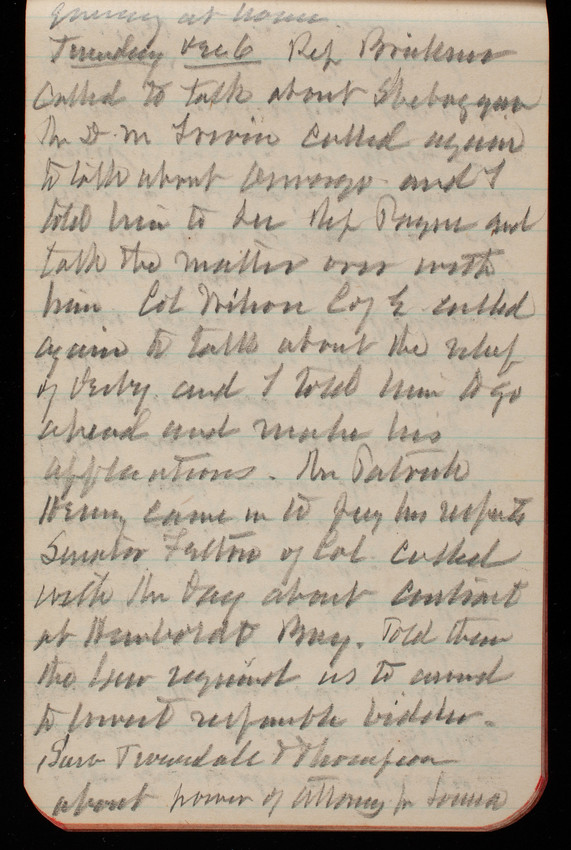 evening at home
Tuesday Dec 6 Rep Brickner
Called to talk about Sheboygan
Mr D. M. Irwin called again
to talk about Oswego and I
told him to see Rep Payne and
talk the matter over with
him Col Wilson C of E called
again to talk about the relief
of Derby and I told him to go
ahead and make his
applications. Mr Patrick
Henry came in to pay his respects
Senator Felton of Cal called
with Mr Day about contract
at Humboldt Bay. Told them
the law required us to award
to lowest responsible bidder.
Saw Truesdale & Thompson
about power of Attorney for